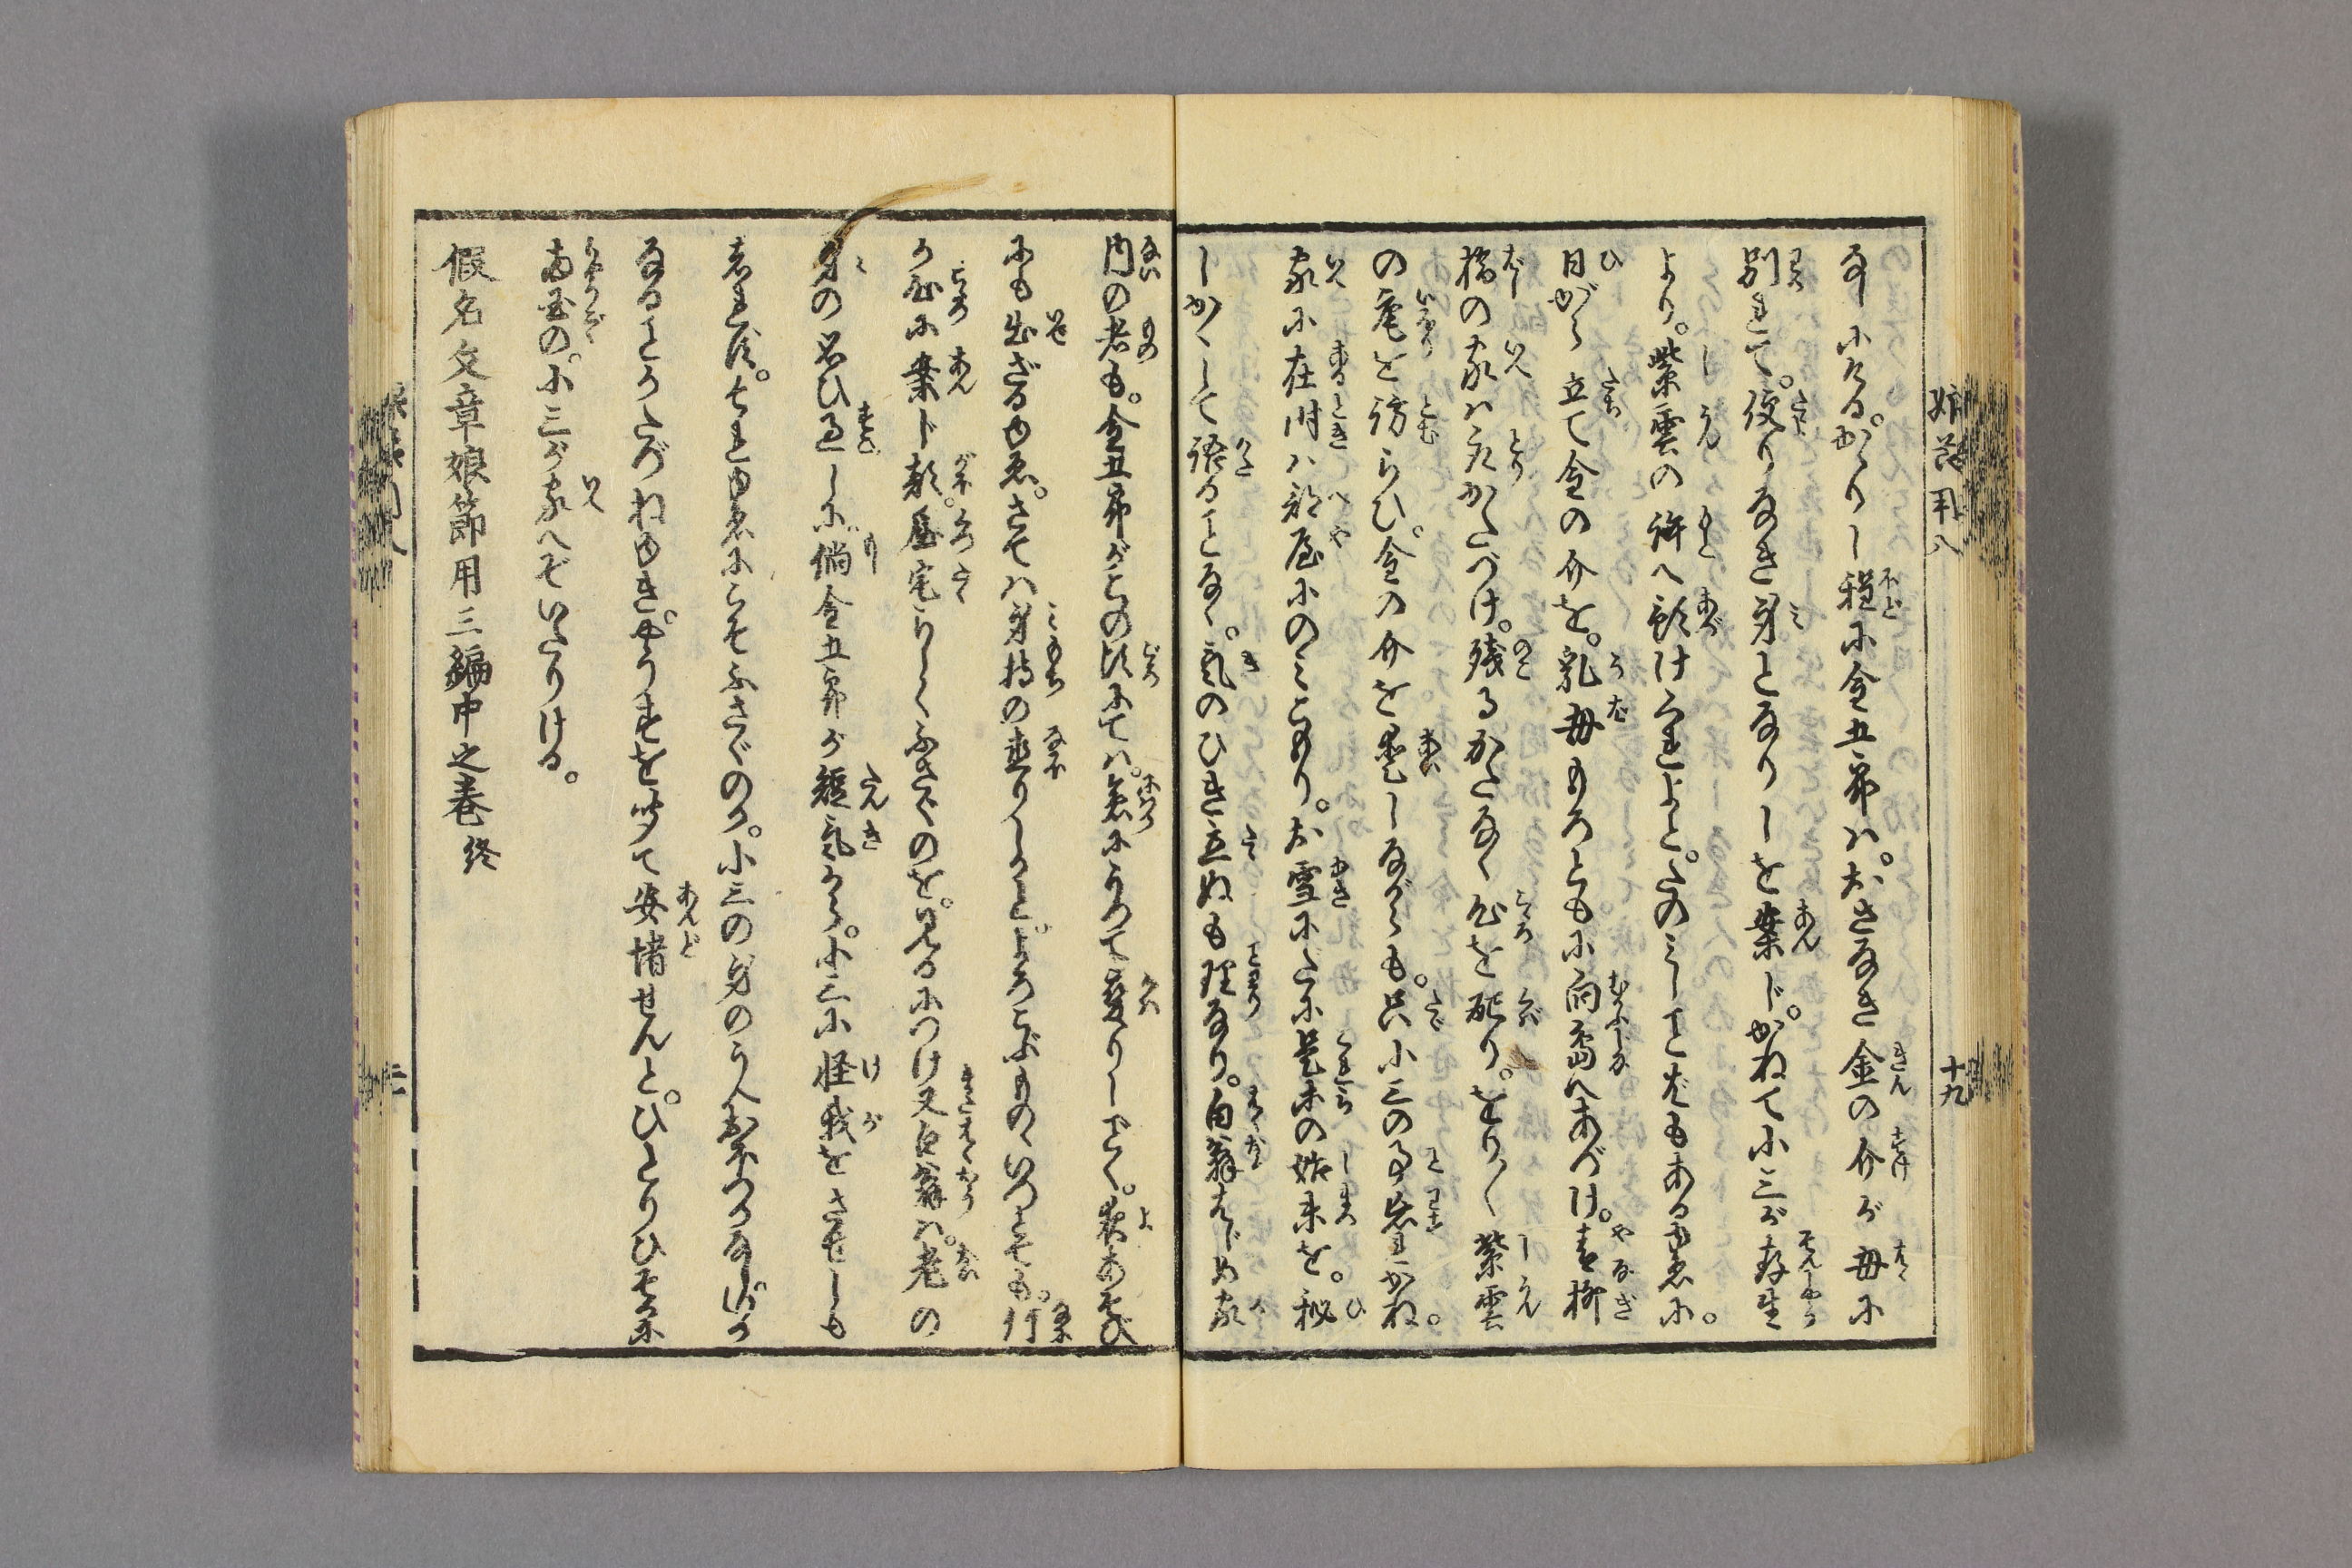 なしにける。かゝりし程に金五郎ハ。おさなき金の介が母に
別れて。便りなき身となりしを案じ。かねて小三が存生
より。紫雲の許へ預けくれよと。たのみしことばもあるゆゑに。
日がら立て金の介を。乳母もろとも小向嶋へあづけ。青柳
橋の家ハ取かたづけ。残るかたなく心を配り。をり〳〵紫雲
の庵を訪らひ。金の介を愛しながらも。只小三の事忘れかね。
家に在時ハ部屋にのミこもり。お雪にたに是等の始末を。秘
しかくして語ることなく。気のひき立ぬも理なり。白翁はじめ家
内の者も。金五郎がこの頃にてハ。気にうつて変りしごとく。夜あそび
にも出ざるゆゑ。さてハ身持の直りしかと。よろこぶものゝいつとても。何
か心に案ト顔。屋宅らしくふさぐのを。見るにつけ又白翁ハ。老の
身の思ひ過しに。倘金五郎が短気から。小三に怪我をさせしも
しれず。それゆゑにこそふさぐのか。小三の身のうへおぼつかなし。いづく
なるとかたづねゆき。やうすを聞て安堵せんと。ひとりひそかに
両国の。小三が家へぞいたりける。
假名文章娘節用三編中之巻終
娘節用八
十九